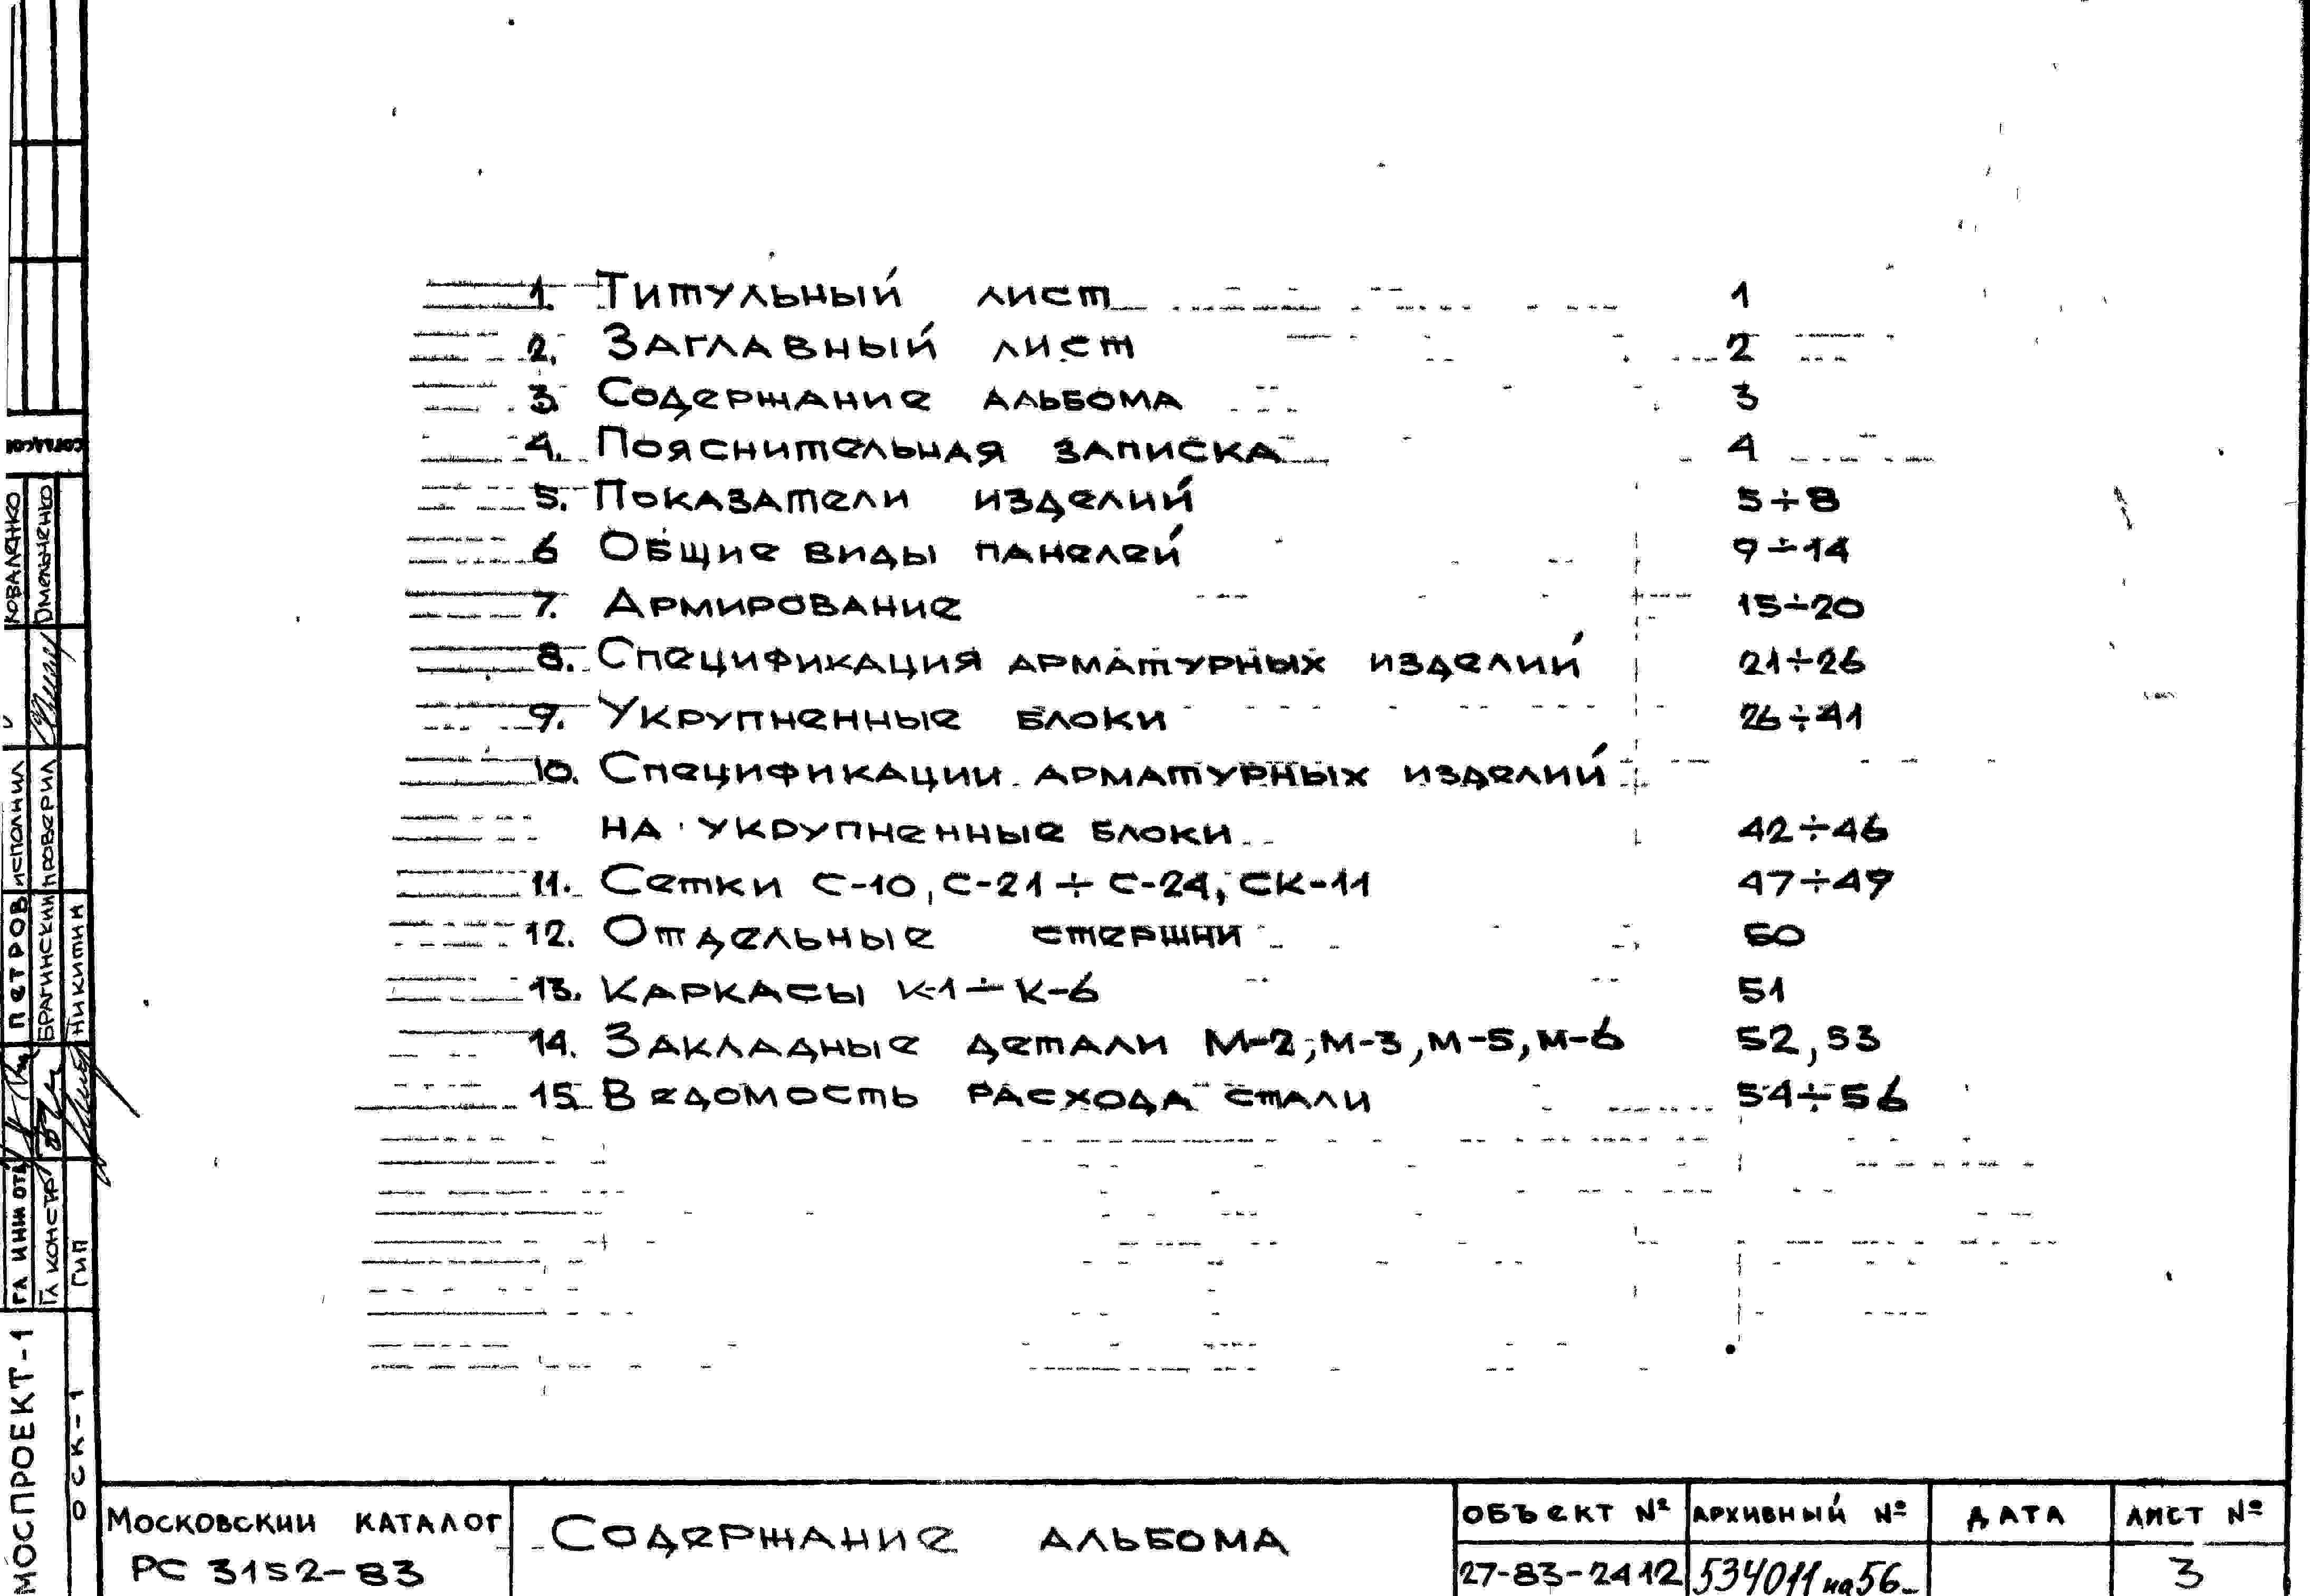 1. Титульный лист 1
2. Заглавный лист 2
3. Содержание альбома 3
4. Пояснительная записка 4
5. Показатели изделий 5÷8
6 Общие виды панелей 9÷14
7. Армирование 15÷20
8. Спецификация арматурных изделий 21÷26
9. Укрупненные блоки 26÷41
10. Спецификации арматурных изделий
на укрупненные блоки 42÷46
11. Сетки С-10, С-21÷С-24, СК-11 47÷49
12. Отдельные стержни 50
13. Каркасы К-1÷К-6 51
14. Закладные детали М-2, М-3, М-5, М-6 52, 53
15. Ведомость расхода стали 54÷56
Московский каталог
РС 3152-83
Содержание альбома
Объект №
27-83-2412
Архивный №
534011 на 56
Дата
Лист №
3
МОСПРОЕКТ-1
ОСК-1
Гл инж отд
Петров
исполнил
Коваленко
Гл констр
Брагинский
проверил
Омельченко
ГИП
Никитин